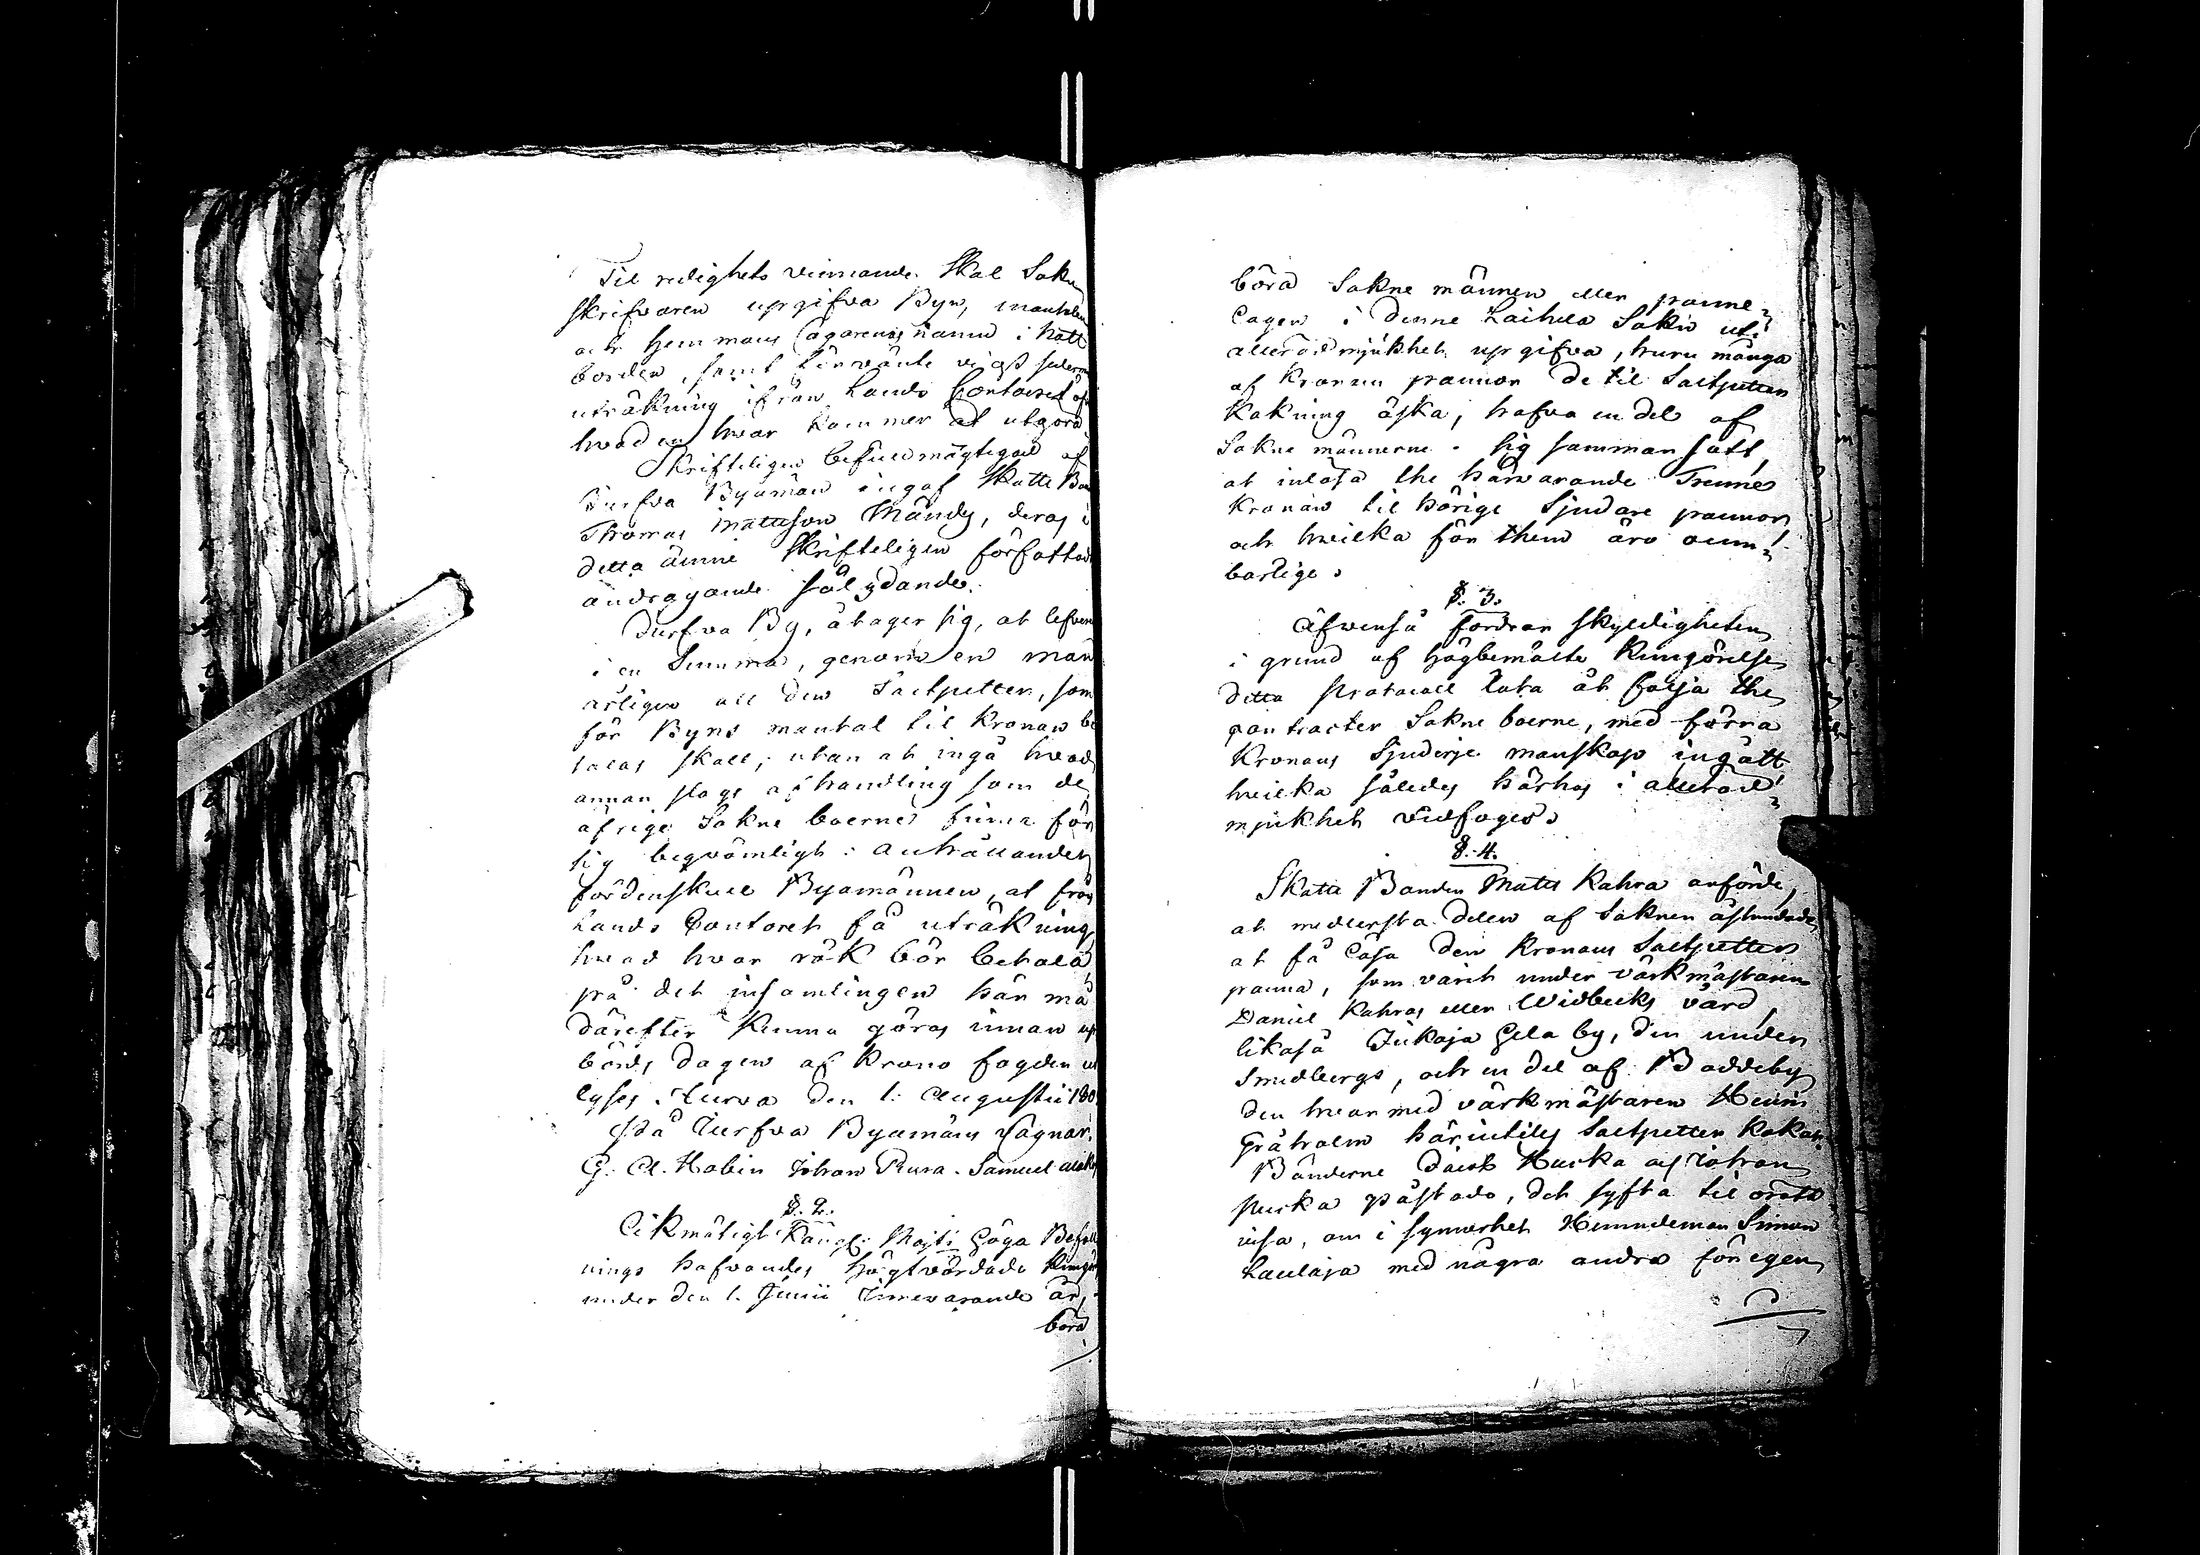 Til redighets vinnande skal Sokn
skrifvaren upgifva Byn, mantalen
och hemmans Ägarenas namn i håll
borden, samt förvänte vi oss sederm
uträkning ifrån Lands Contoiret af
hvad en hvar kommer at utgöra
Skrifteligen befullmägtigad af
Jurfva Byamän ingaf Skatte Bon
Thomas Mattsson Mändy, deras i
detta ämne skrifteligen författade
andragande så lydande.
Jurfva By, åtager sig, at lefver
i en Summa, genom en man
årligen all den Saltpetter, som
för Byns mantal til Kronan be
talas skall, utan at ingå hvad
annan slags afhandling som de
öfrige Sokne boerne finna för
sig beqvämligt: anhållandes
fördenskull Byamännen, at från
Lands Contoret få uträkning
hvad hvar rök bör betala
på det insamlingen här må
därefter kunna göras innan up
börds dagen af Krono fogden ut
lyses. Jurva den 1: Augustii 180
På Jurfva Byamäns vägnar.
G. A. Hobin Johan Rura. Samuel
§. 2.
Likmätigt Kongl: Majts Höga Befall
nings hafvandes högtvördade Kungör
under den 1. Junii innevarande år,
böra
böra Sokne männen eller panne-
lagen i denne Laihela Sokn uti
allerödmjukhet upgifva, huru många
af Kronan pannor de til Saltpetter
kokning äska, hafva en del af
Sokne männerne sig samman satt
at inlösa the härvarande Trenne
Kronan til hörige Sjudare pannor
och hvilka för them äro oum-
bärlige.
§. 3.
Äfvenså fordrar skyldigheten
i grund af högbemälte Kungörelse
detta Protocoll låta åt följa the
contracter Sokne boerne, med förra
Kronans Sjuderje manskap ingått
hvilka således härhos i alleröd-
mjukhet vidfoges.
§. 4.
Skatte Bonden Matts Kahra anförde,
at medlersta delen af Soknen åstundade
at få lösa den Kronans Saltpetter
panna, som varit under värkmästaren
Daniel Kahras eller Widbecks vård,
likaså Jukaja hela by, den under
Smedbergs, och en del af Boddeby
den hvarmed värkmästaren Henric
Gråholm härintils Saltpetter kokat.
Bönderne Jacob Hurka och Johan
Purka påstodo, det syfta til orätt
visa, om i synnerhet Nemndeman Simon
Laulaja med några andra för egen